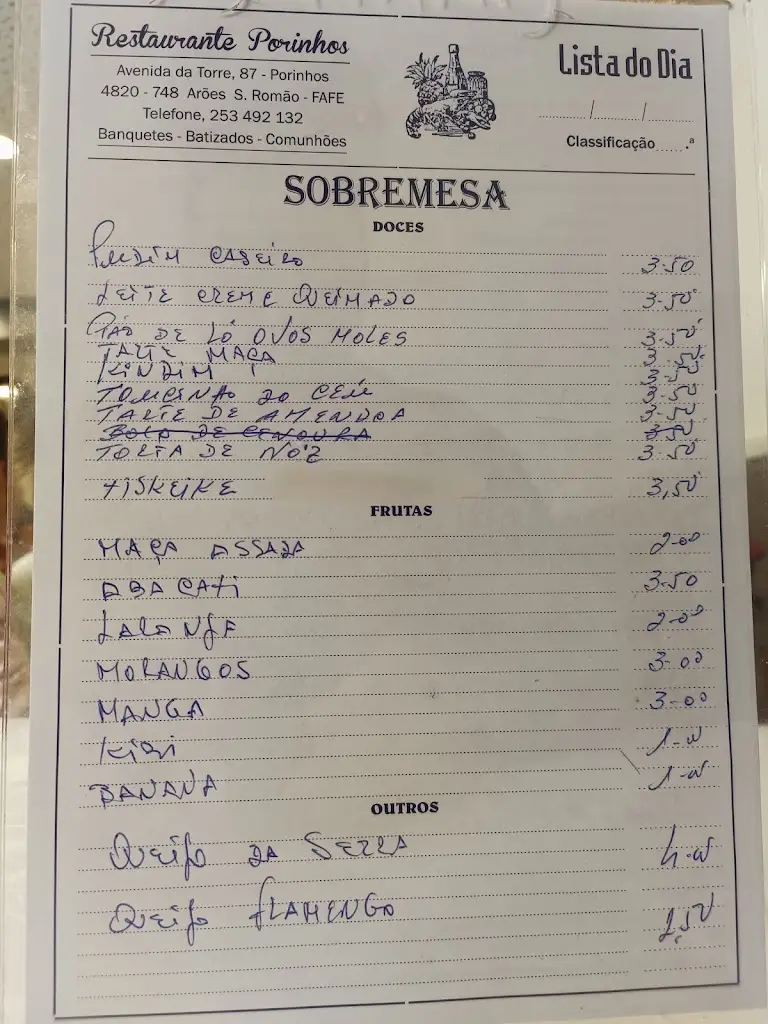 Restaurante Porinhos
Avenida da Torre, 87 - Porinhos
4820 - 748 Arões S. Romão - FAFE
Telefone, 253 492 132
Banquetes - Batizados - Comunhões
Lista do Dia
....../....../......
Classificação......ª
SOBREMESA
DOCES
Pudim caseiro 3.50
Leite creme Queimado 3.50
Pão de Ló ovos moles 3.50
TARTE MAÇA 3.50
KINDIM 3.50
TOUCINHO DO CÉU 3.50
TARTE DE AMENDOA 3.50
BOLO DE CENOURA 3.50
TORTA DE NÓZ 3.50
TISKEIKE 3,50
FRUTAS
MAÇA ASSADA 2-00
ABACATI 3.50
LARANJA 2-00
MORANGOS 3-00
MANGA 3-00
KIWI 1-00
BANANA 1-00
OUTROS
Queijo DA SERRA 4-00
Queijo FLAMENGO 2,50